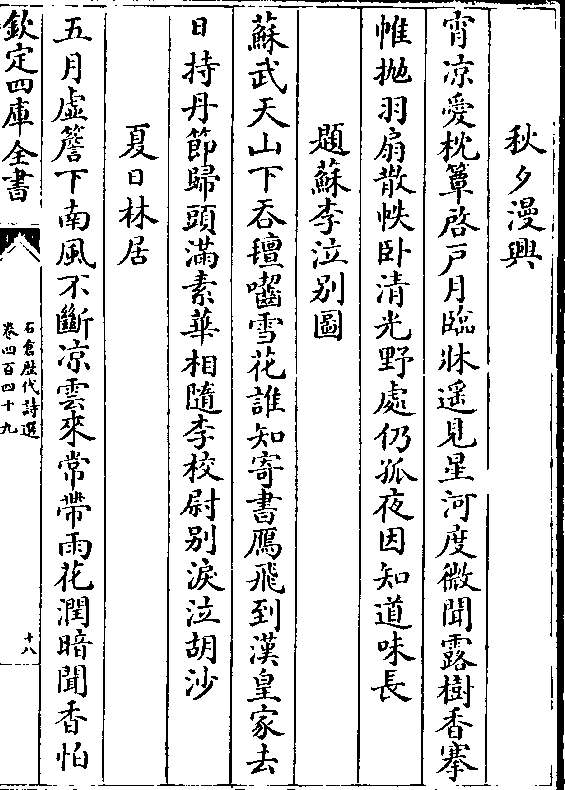 秋夕漫興
宵凉愛枕簟啓戸月臨牀遥見星河度微聞露樹香搴
帷抛羽扇散帙卧清光野處仍孤夜因知道味長
題蘇李泣别圖
蘇武天山下吞氊嚙雪花誰知寄書鴈飛到漢皇家去
日持丹節歸頭滿素華相隨李校尉别淚泣胡沙
夏日林居
五月虛簷下南風不斷凉雲來常帶雨花潤暗聞香怕
欽定四庫全書
石倉歴代詩選
卷四百四十九
十八